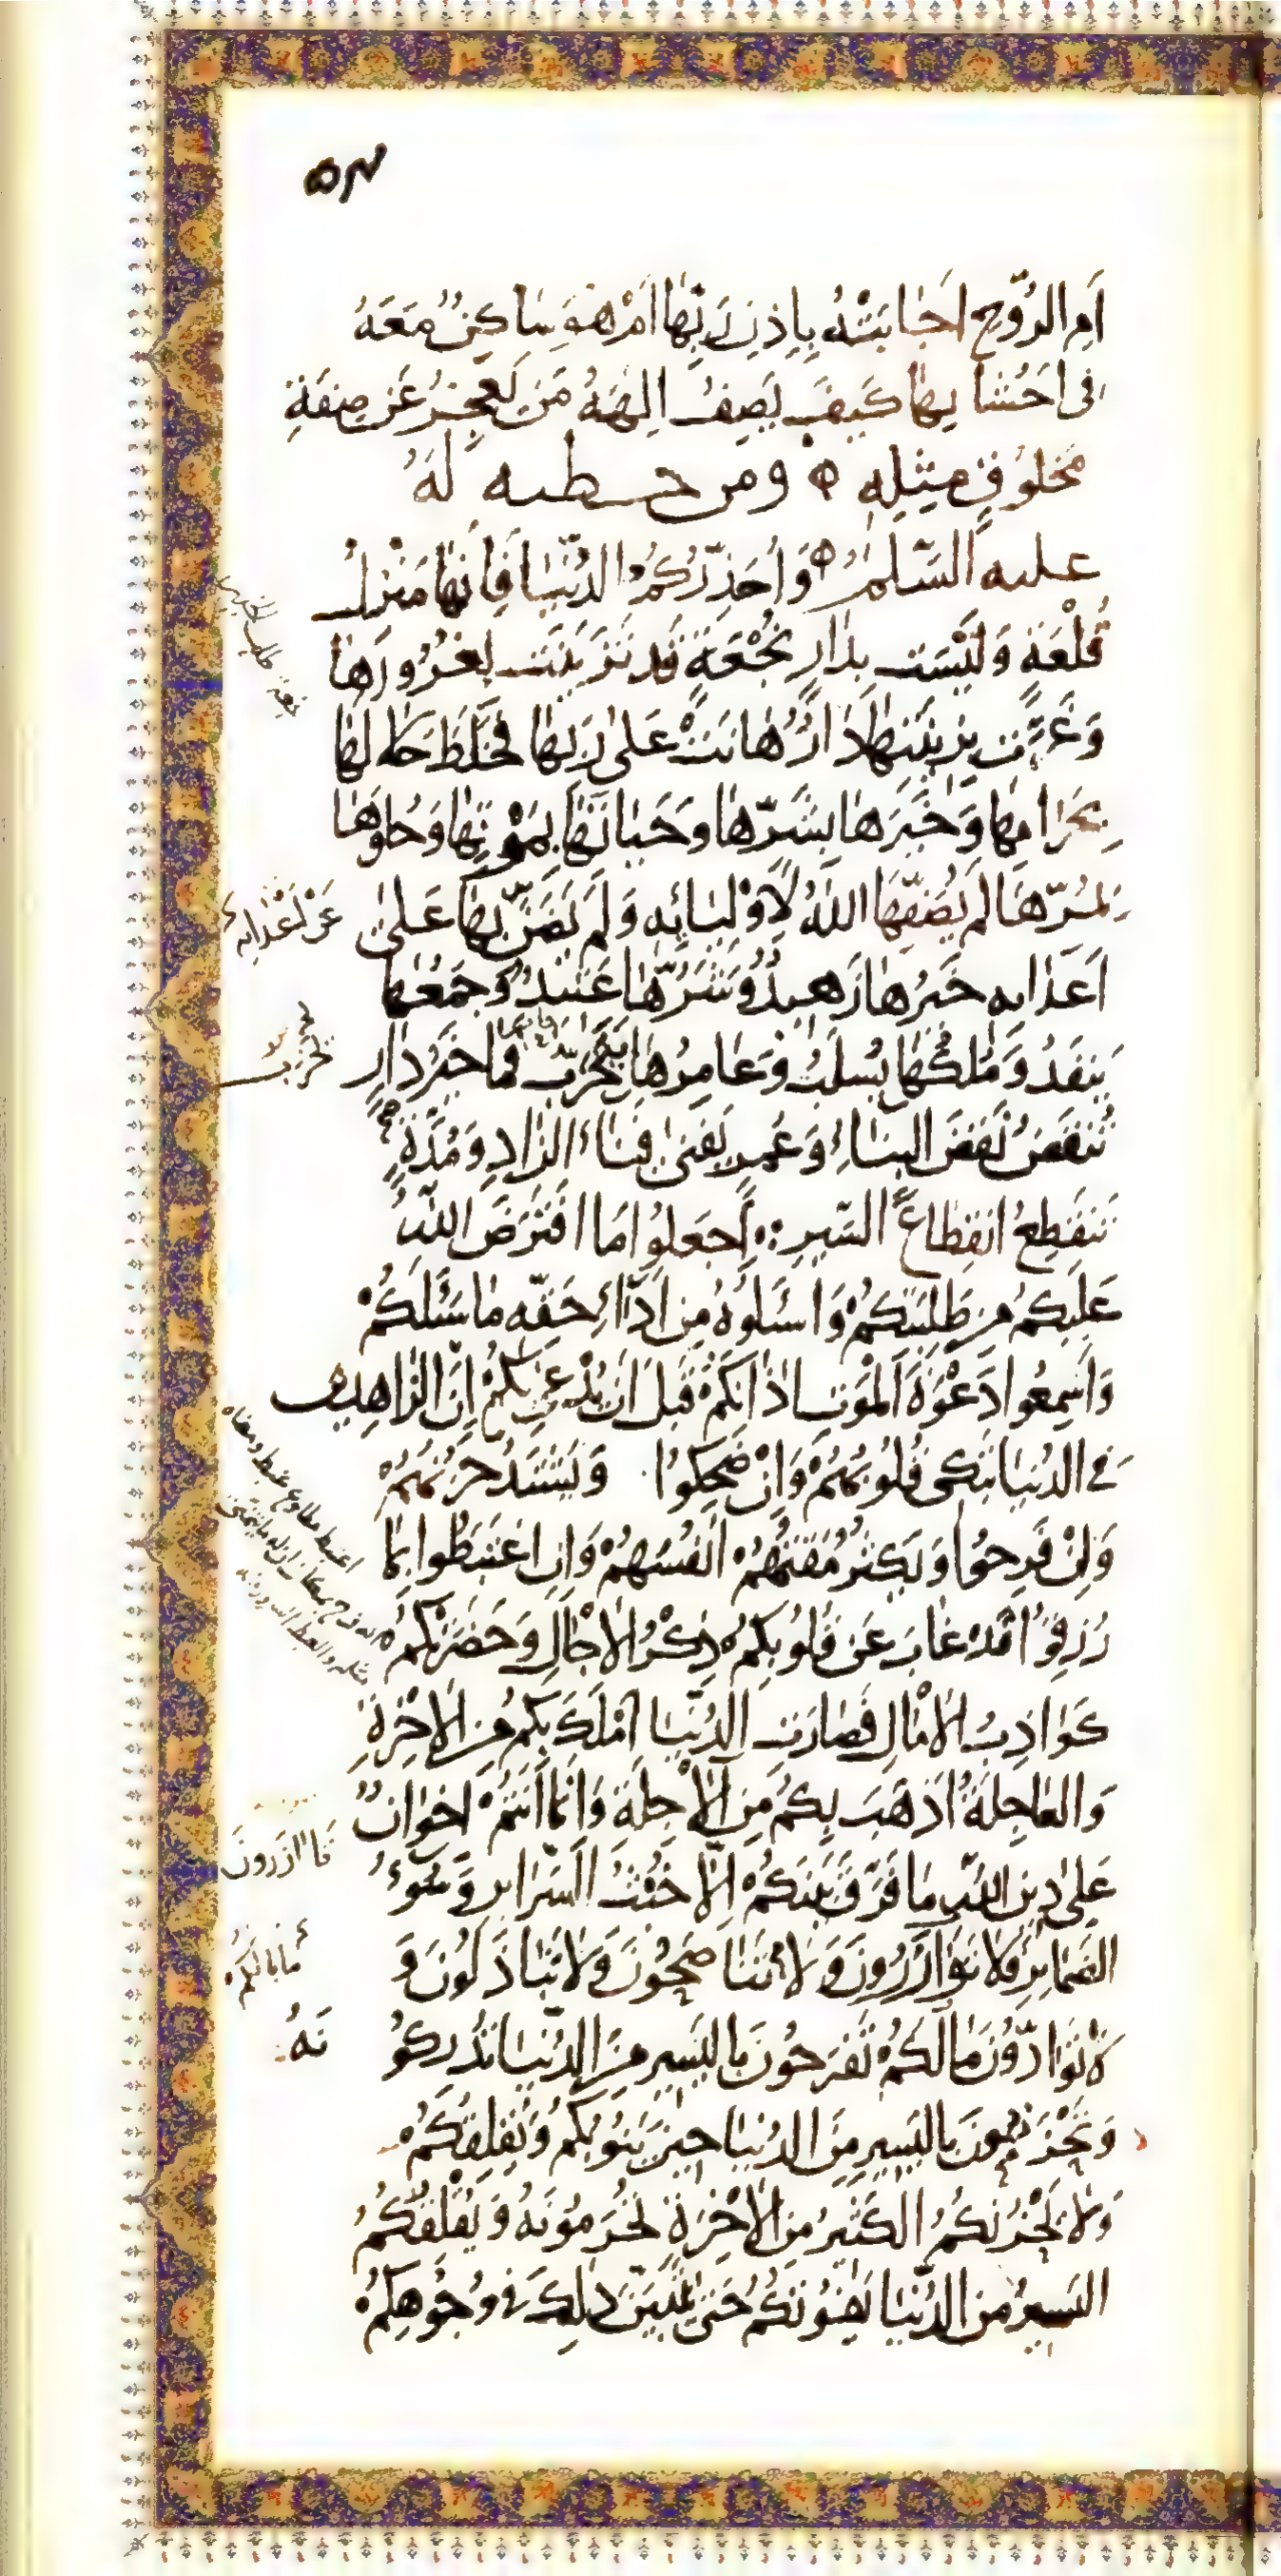 اَمِ الرُّوحُ اَجَابَتْهُ بِاِذنِ رَبِّهَا اَمْ هُوَ سَاكِنٌ مَعَهُ
فى اَحْشَايِهَا كَيفَ يَصِفُ اِلٰهَهُ مَن يَعجِزُ عَن صِفَةِ
مَخلُوقٍ مِثلِهِ ومن خطبه لَهُ
عليه السَّلٰم وَاُحَذِّرُكُمُ الدُّنيَا فَاِنَّهَا مَنْزِلُ
قُلْعَةٍ وَلَيْسَت بِدَارِ نُجْعَةٍ قَد تَزَيَّنَت بِغُرُورِهَا
وَغَرَّت بِزِينَتِهَا دَارٌ هَانَتْ عَلٰى رَبِّهَا فَخَلَطَ حَلالَهَا
بِحَرَامِهَا وَخَيرَهَا بِشَرِّهَا وَحَيَاتَهَا بِمَوتِهَا وَحُلوَهَا
بِمُرِّهَا لَم يُصْفِهَا اللهُ لِاَوْلِيَائِهِ وَلَم يَضَنَّ بِهَا عَلٰى
عَنْ اَعْدَائِهِ
اَعدَائِهِ خَيرُهَا زَهِيدٌ وَشَرُّهَا عَتِيدٌ وَجَمعُهَا
يَنفَدُ وَمُلكُهَا يُسلَبُ وَعَامِرُهَا يَخرَبُ فَمَا خَيرُ دَارٍ
تُنقَضُ نَقضَ البِنَاءِ وَعُمرٍ يَفنٰى فَنَاءَ الزَّادِ وَمُدَّةٍ
تَنقَطِعُ انقِطَاعَ السَّيرِ اِجعَلُوا مَا افتَرَضَ اللهُ
عَلَيكُم مِن طَلِبَتِكُمْ وَاسئَلُوهُ مِن اَدَاءِ حَقِّه مَا سَئَلَكُمْ
وَاَسمِعُوا دَعْوَةَ المَوتِ اٰذَانَكُمْ قَبلَ اَن يُدْعٰى بِكُمْ اِنَّ الزَّاهِدِينَ
فِى الدُّنيَا تَبكى قُلُوبُهُمْ وَاِنْ ضَحِكُوا وَيَشتَدُّ حُزنُهُمْ
وَاِنْ فَرِحُوا وَيَكثُرُ مَقتُهُمْ اَنفُسَهُمْ وَاِنِ اغتَبَطُوا بِمَا
رُزِقُوا قَد غَابَ عَن قُلُوبِكُم ذِكرُ الاٰجَالِ وَحَضَرَتكُم
كَوَاذِبُ الاٰمَالِ فَصَارَتِ الدُّنيَا اَمْلَكَ بِكُم مِنَ الاٰخِرَةِ
وَالعَاجِلَةُ اَذهَبَ بِكُم مِنَ الاٰجِلَةِ وَاِنَّمَا اَنتُمْ اِخوَانٌ
عَلٰى دِينِ اللهِ مَا فَرَّقَ بَينَكُمْ اِلَّا خُبْثُ السَّرَايِرِ وَسُوءُ
الضَّمَايِرِ فَلَا تَوَازَرُونَ وَلَا تَنَاصَحُونَ وَلَا تَبَاذَلُونَ وَ
مَا بَالُكُمْ
لَا تَوَادُّونَ مَا لَكُمْ تَفرَحُونَ بِاليَسِيرِ مِنَ الدُّنيَا تُدرِكُو
نَهُ
وَلَا يَحْزُنُكُمُ الكَثيرُ مِنَ الاٰخِرَةِ تُحرَمُونَهُ وَيُقْلِقُكُمُ
اليَسيرُ مِنَ الدُّنيَا يَفُوتُكُم حَتّٰى يَتَبَيَّنَ ذٰلِكَ فى وُجُوهِكُمْ